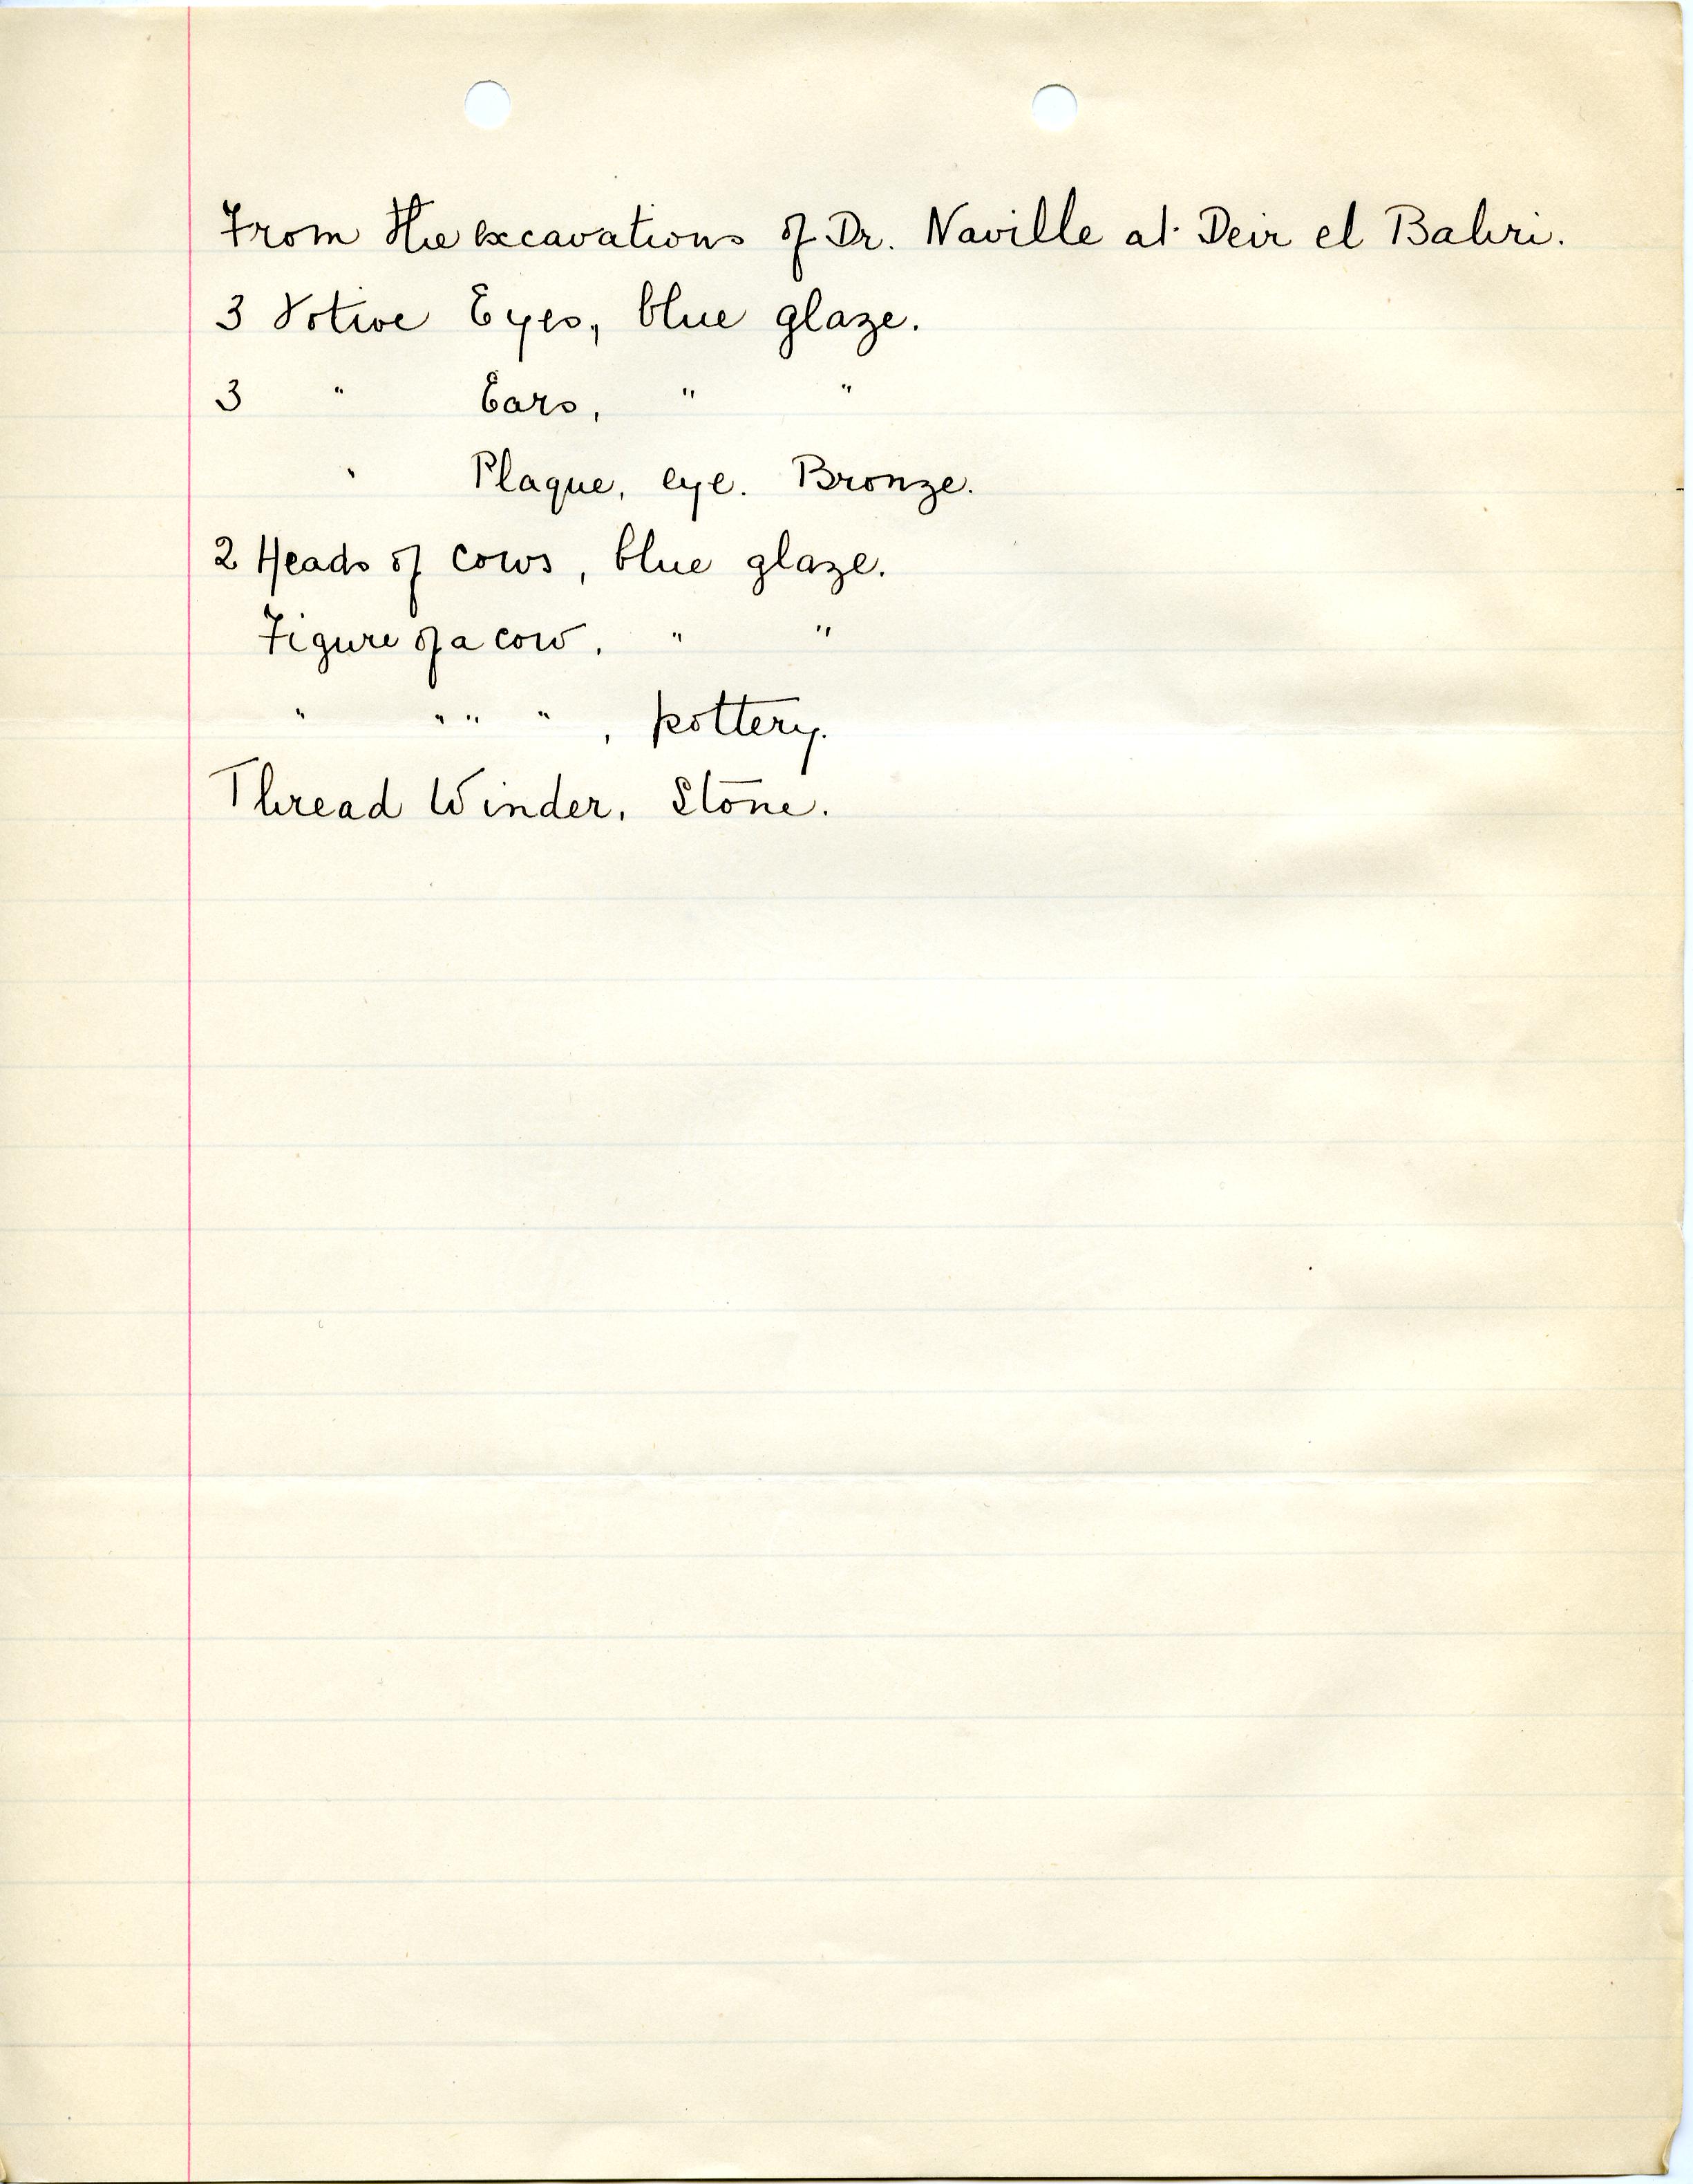 From the excavations of Dr. Naville at Deir el Bahri.
3 Votive Eyes, blue glaze.
3 " Ears, " "
" Plaque, eye. Bronze.
2 Heads of cows, blue glaze.
Figure of a cow, " "
" " " " , pottery.
Thread Winder, Stone.